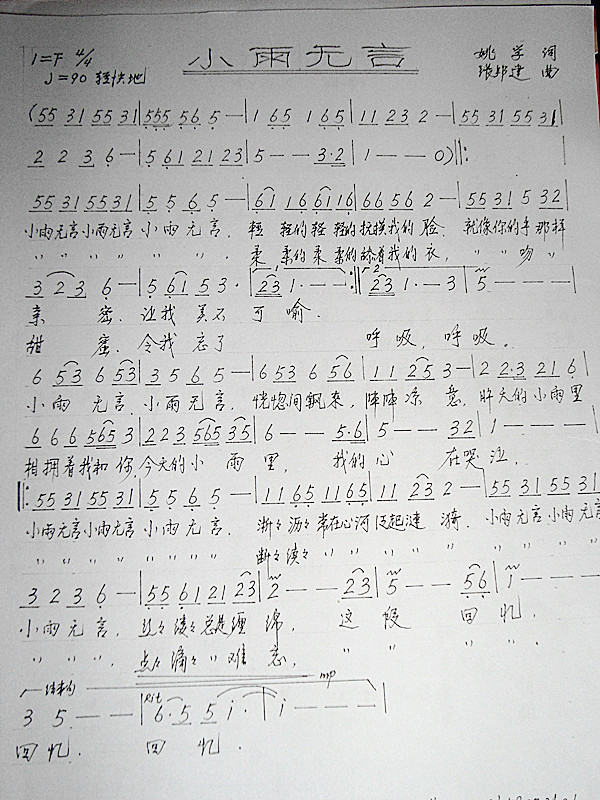 小雨无言
1=F 4/4
♩=90 轻快地
姚学 词
张邦建 曲
(55 31 55 31|555 56 5 —|1 65 1 65|11 23 2 —|55 31 55 31|
2 2 3 6 —|5 61 21 23|5 — — 3·2|1 — — 0)‖:
55 31 55 31|5 5 6 5 —|61 16 61 16|66 56 2 —|55 31 5 32|
小雨无言小雨无言 小雨无言. 轻轻的轻轻的抚摸我的脸. 就像你的手那样
〃 〃 〃 〃 〃 〃 〃 〃 柔柔的柔柔的舔着我的衣, 〃 〃 吻 〃
3 2 3 6 —|5 61 53 ·|1. 23 1 · —:‖2. 23 1 — 3|5 — — —|
亲 密. 让我美不可喻.
甜 蜜. 令我忘了 呼吸, 呼吸.
6 53 6 53|3 5 6 5 —|6 53 6 56|11 25 3 —|2 2·3 21 6|
小雨 无言. 小雨无言. 恍惚间飘来, 阵阵凉意. 昨天的小雨里
6 6 6 5 65 3|2 2 3 565 35|6 — — 5·6|5 — — 32|1 — — —|
相拥着我和你, 今天的小雨里, 我的心 在哭泣.
‖:55 31 55 31|5 5 6 5 —|11 65 11 65|11 23 2 —|55 31 55 31|
小雨无言小雨无言 小雨无言. 淅々沥々常在心河泛起涟漪. 小雨无言小雨无言
〃 〃 〃 〃 〃 〃 〃 断々续々 〃 〃 〃 〃
3 2 3 6 —|55 61 21 23|2 — — 23|5 — — 56|1 — — —|
小雨无言, 丝々缕々总是缠绵. 这段 回忆.
〃 〃 〃 点々滴々 〃 难忘, 〃 〃 〃 〃
结束句 mp
3 5 — —|Rit 6·5 5 i ·|i — — —|
回忆. 回忆.